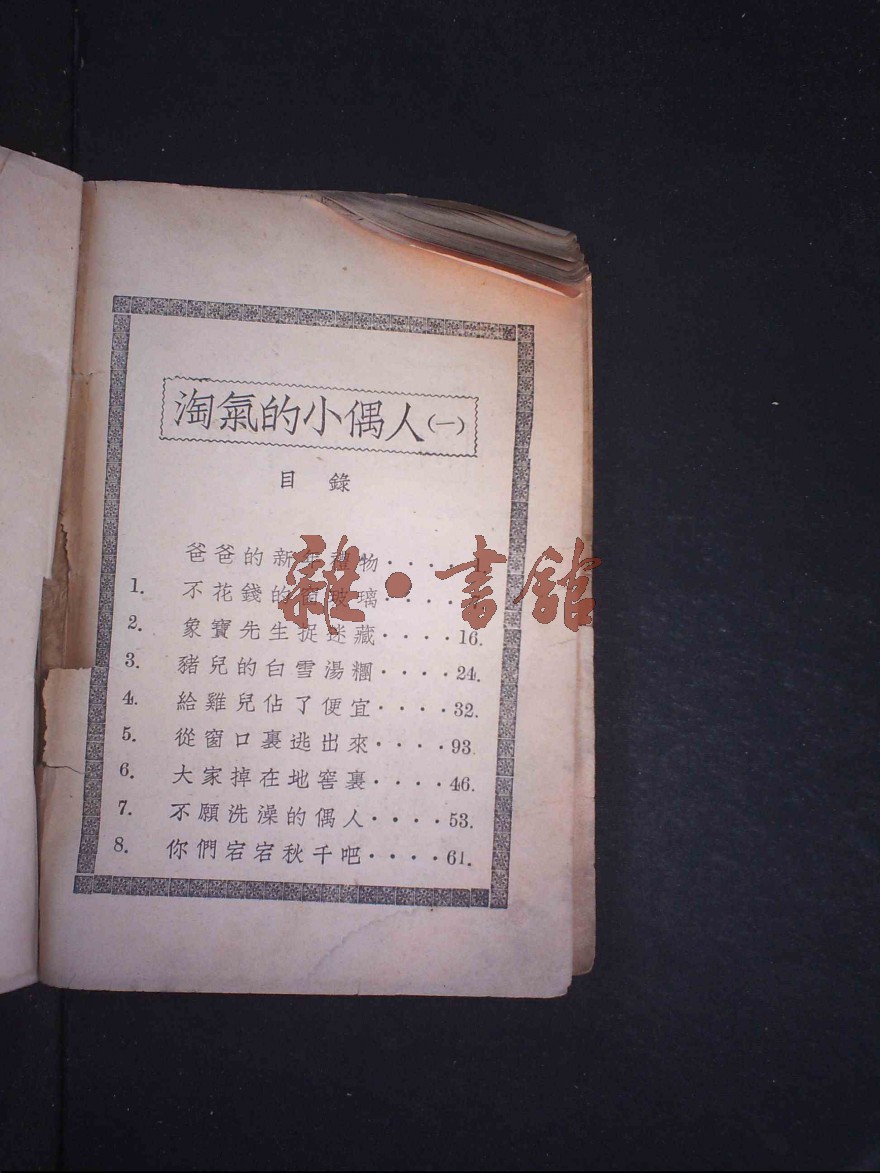 淘氣的小偶人(一)
目錄
爸爸的新年禮物····1.
1. 不花錢的窗玻璃····
2. 象寶先生捉迷藏····16.
3. 豬兒的白雪湯糰····24.
4. 給雞兒佔了便宜····32.
5. 從窗口裏逃出來····93
6. 大家掉在地窖裏····46.
7. 不願洗澡的偶人····53.
8. 你們宕宕秋千吧····61.
雜·書館